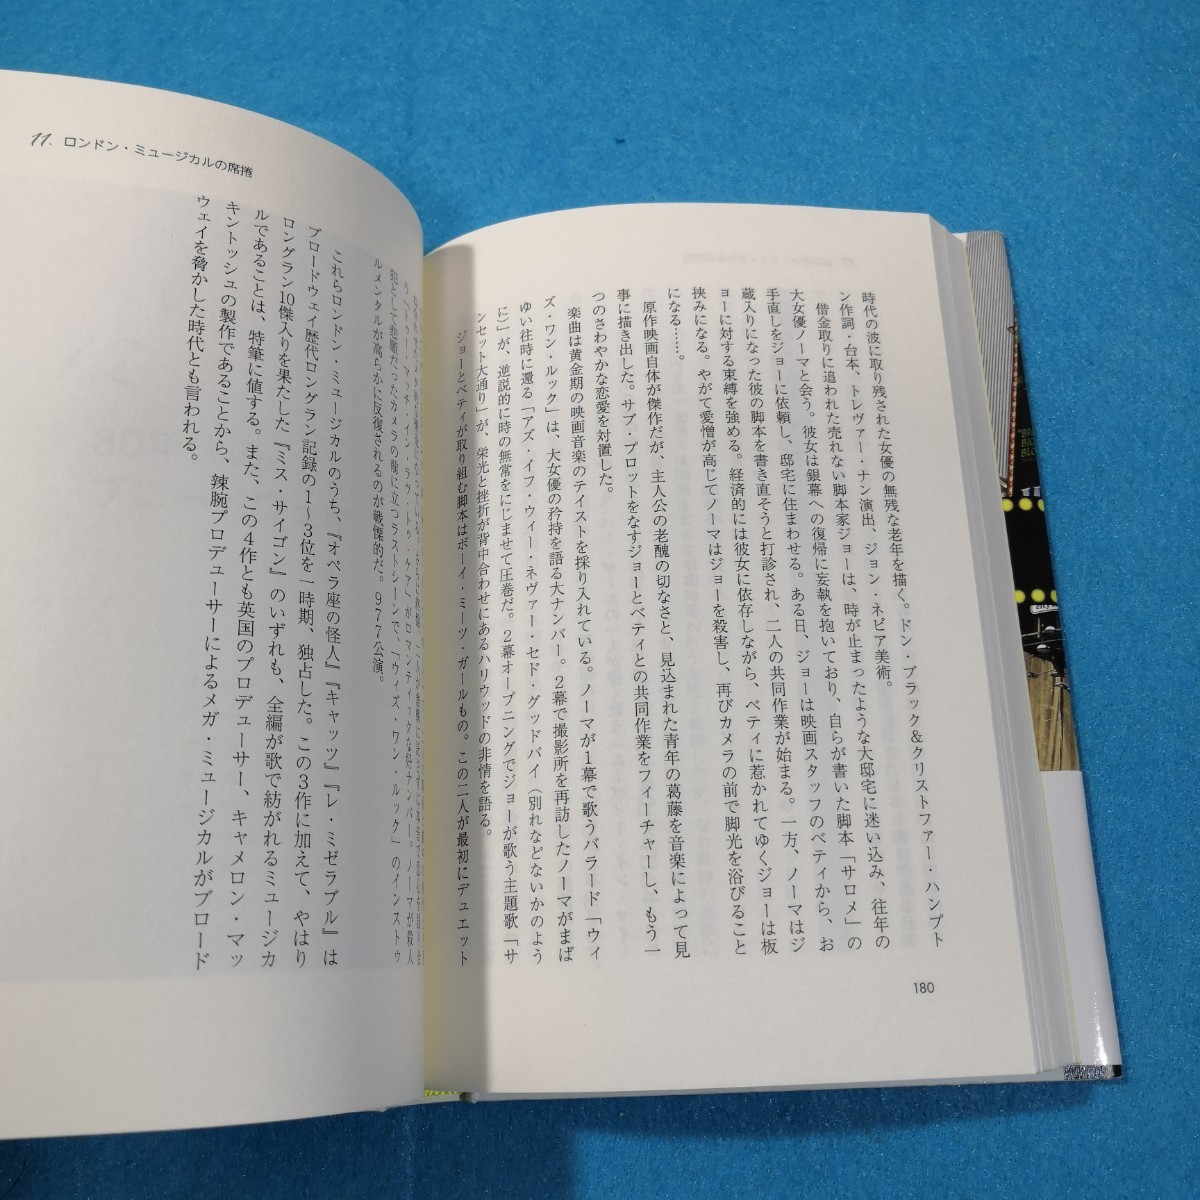 時代の波に取り残された女優の無残な老年を描く。ドン・ブラック&クリストファー・ハンプト
ン作詞・台本、トレヴァー・ナン演出、ジョン・ネピア美術。
借金取りに追われた売れない脚本家ジョーは、時が止まったような大邸宅に迷い込み、往年の
大女優ノーマと会う。彼女は銀幕への復帰に妄執を抱いており、自らが書いた脚本「サロメ」の
手直しをジョーに依頼し、邸宅に住まわせる。ある日、ジョーは映画スタッフのベティから、お
蔵入りになった彼の脚本を書き直そうと打診され、二人の共同作業が始まる。一方、ノーマはジ
ョーに対する束縛を強める。経済的には彼女に依存しながら、ベティに惹かれてゆくジョーは板
挟みになる。やがて愛憎が高じてノーマはジョーを殺害し、再びカメラの前で脚光を浴びること
になる……。
原作映画自体が傑作だが、主人公の老醜の切なさと、見込まれた青年の葛藤を音楽によって見
事に描き出した。サブ・プロットをなすジョーとベティとの共同作業をフィーチャーし、もう一
つのさわやかな恋愛を対置した。
楽曲は黄金期の映画音楽のテイストを採り入れている。ノーマが1幕で歌うバラード「ウィ
ズ・ワン・ルック」は、大女優の矜持を語る大ナンバー。2幕で撮影所を再訪したノーマがまば
ゆい往時に還る「アズ・イフ・ウィー・ネヴァー・セド・グッドバイ(別れなどないかのよう
に)」が、逆説的に時の無常をにじませて圧巻だ。2幕オープニングでジョーが歌う主題歌「サ
ンセット大通り」が、栄光と挫折が背中合わせにあるハリウッドの非情を語る。
ジョーとベティが取り組む脚本はボーイ・ミーツ・ガールもの。この二人が最初にデュエット
180
11. ロンドン・ミュージカルの席捲
犯として悲願だったカメラの前に立つラストシーンで、「ウィズ・ワン・ルック」のインストゥ
ルメンタルが高らかに反復されるのが戦慄的だ。977公演。
これらロンドン・ミュージカルのうち、『オペラ座の怪人』『キャッツ』『レ・ミゼラブル』は
ブロードウェイ歴代ロングラン記録の1〜3位を一時期、独占した。この3作に加えて、やはり
ロングラン10傑入りを果たした『ミス・サイゴン』のいずれも、全編が歌で紡がれるミュージカ
ルであることは、特筆に値する。また、この4作とも英国のプロデューサー、キャメロン・マッ
キントッシュの製作であることから、辣腕プロデューサーによるメガ・ミュージカルがブロード
ウェイを脅かした時代とも言われる。